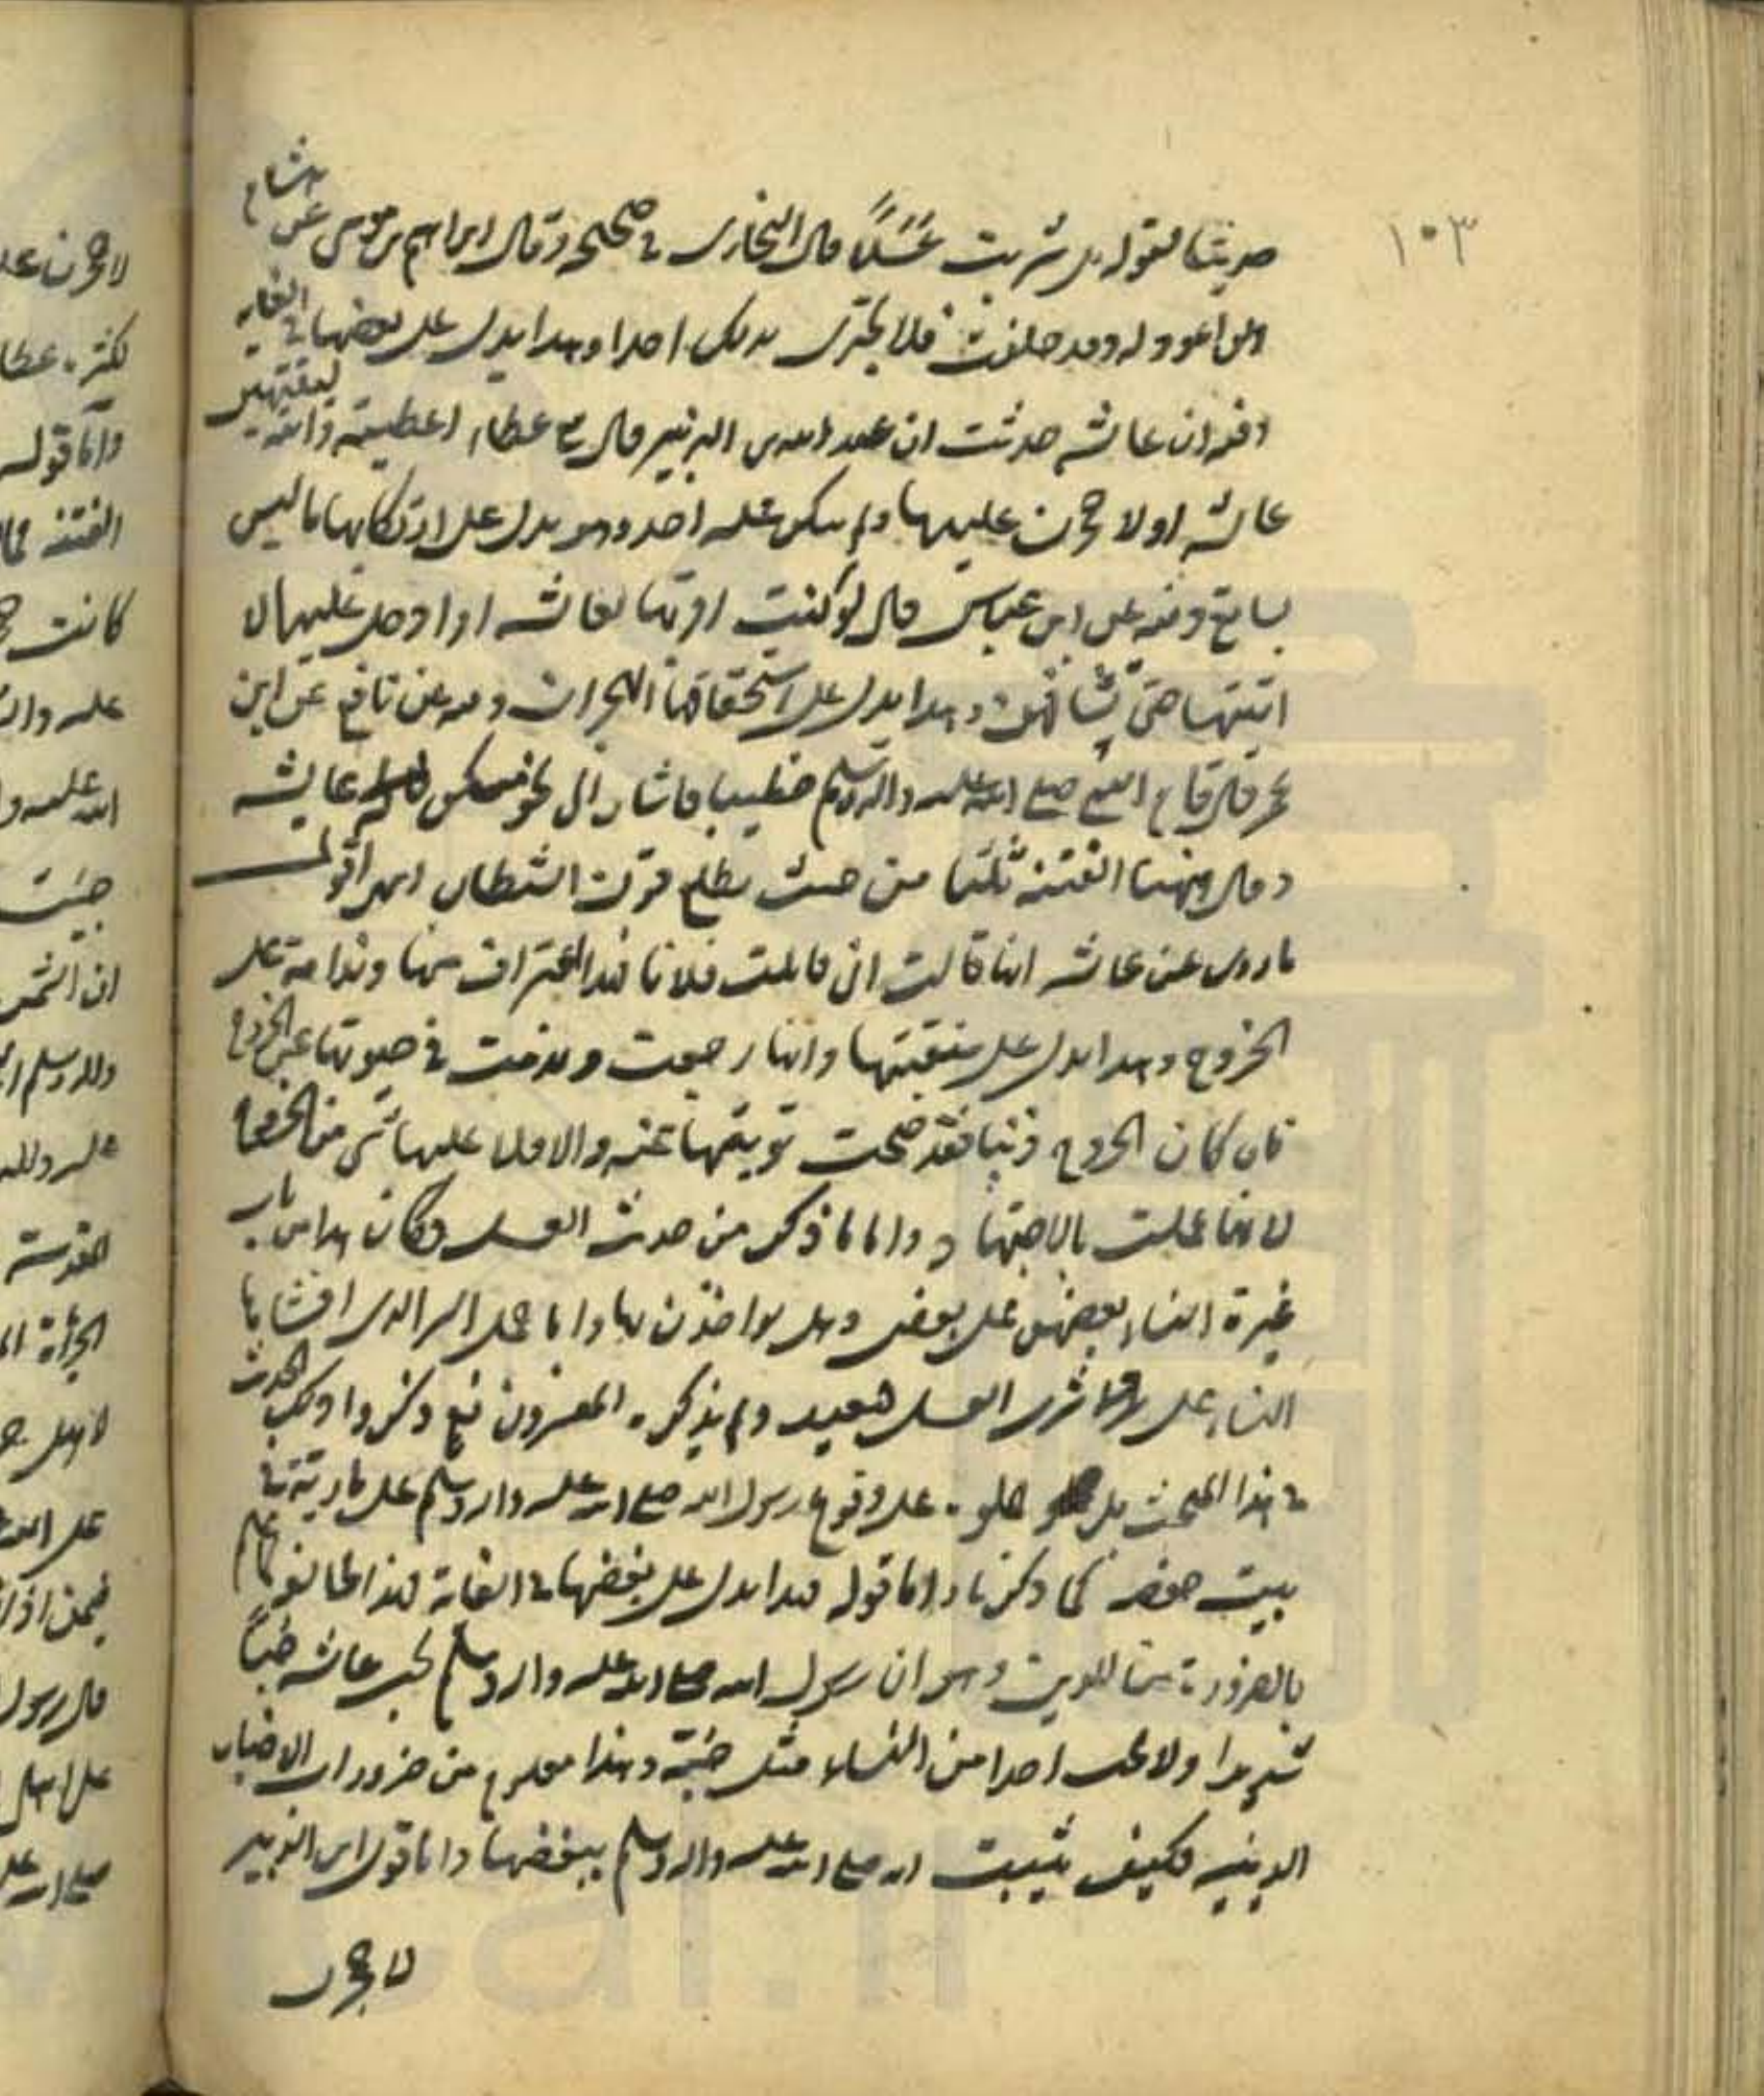 ١٠٣
حديثا لقوله بل شربت عسلًا قال البخاري في صحيحه وقال ابراهيم بن موسى عن هشام
ولن اعود له وقد حلفت فلا تخبري بذلك احدا وهذا يدل على بغضها في الغاية
وفيه ان عائشة حدثت ان عبد الله بن الزبير قال في عطاء اعطيته والله لتنتهين
عائشة او لاحجرن عليها ولم ينكر عليه احد وهو يدل على ارتكابها ما ليس
بسايغ وفيه عن ابن عباس قال لو كنت اقربها لعائشة او ادخل عليها لا
اتيتها حتى تشافهني وهذا يدل على استحقاقها الهجران وفيه عن نافع عن ابن
عمر قال قام النبي صلى الله عليه واله وسلم خطيبا فاشار الى نحو مسكن عايشة
وقال ههنا الفتنة ثلثا من حيث يطلع قرن الشيطان انتهى اقول
ما روى عن عائشة انها قالت اني قاتلت فلانا فهذا اعتراف منها وندامة على
الخروج وهذا يدل على منقبتها وانها رجعت وندمت في حيوتها عن الخروج
فان كان الخروج ذنبا فقد صحت توبتها عنه والا فلا عليها شي من الخروج
لانها عملت بالاجتهاد واما ما ذكر من حديث العسل فكان هذا من باب
غيرة النساء بعضهن على بعض وهل يواخذن بها واما حمل السر الذي افشاها
النساء على شرب العسل فبعيد ولم يذكره المفسرون نعم ذكروا ذلك الحديث
في هذا المبحث بل حملوه على وقوع رسول الله صلى الله عليه واله وسلم على مارية في
بيت حفصة كما ذكرنا واما قوله هذا يدل على بغضها في الغاية فهذا مخالف لما علم
بالضرورة من الدين وهو ان رسول الله صلى الله عليه واله وسلم يحب عائشة حبًا
شديدا ولا يحب احدا من النساء مثل حبه وهذا معلوم من ضروريات الاخبار
الدينية فكيف يثبت انه صلى الله عليه واله وسلم يبغضها واما قول ابن الزبير
لاحجرن